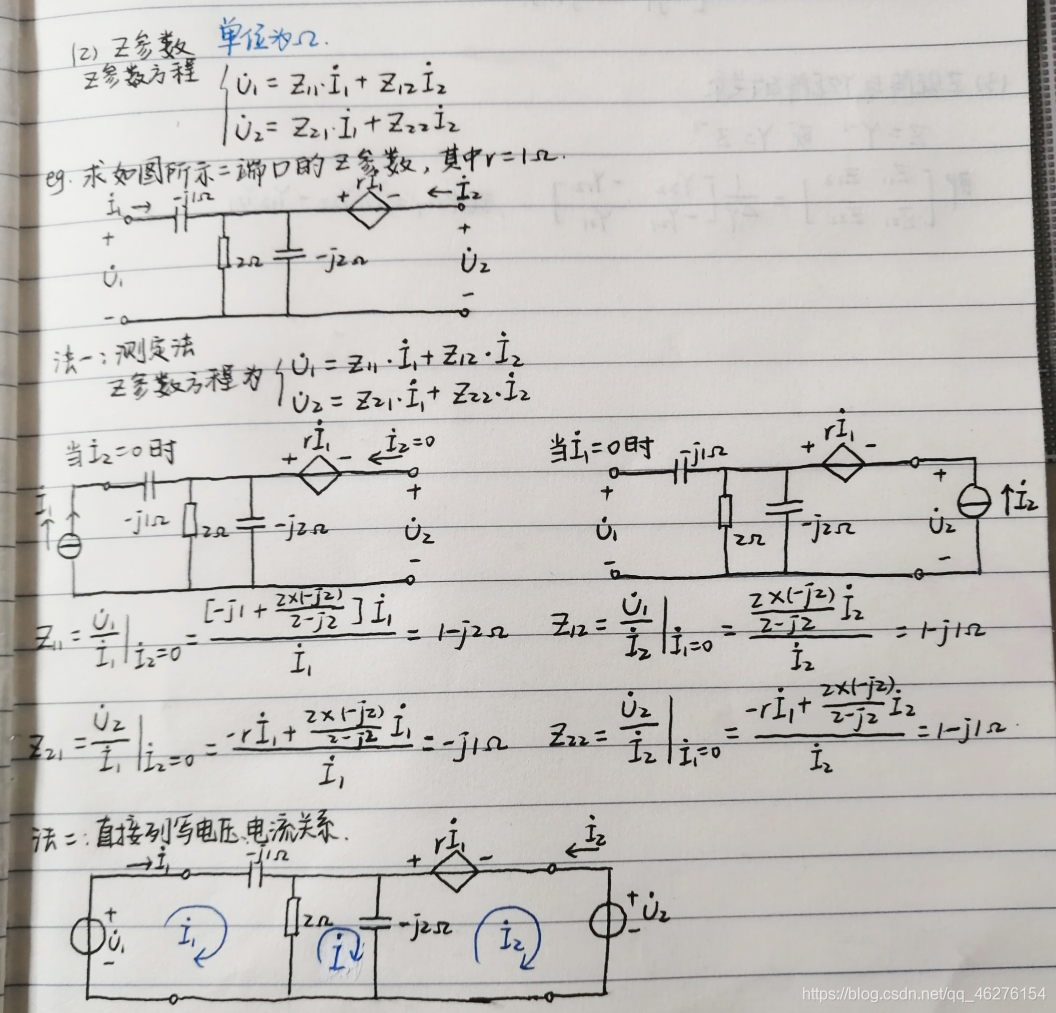 (2) Z参数 单位为Ω.
Z参数方程 { U̇₁ = Z₁₁·İ₁ + Z₁₂İ₂
U̇₂ = Z₂₁·İ₁ + Z₂₂İ₂
eg. 求如图所示二端口的Z参数,其中r=1Ω.
İ₁ → -j1Ω + rİ₁ - ← İ₂
+ U̇₁ - 2Ω -j2Ω + U̇₂ -
法一:测定法
Z参数方程为 { U̇₁ = Z₁₁·İ₁ + Z₁₂·İ₂
U̇₂ = Z₂₁·İ₁ + Z₂₂·İ₂
当İ₂=0时 + rİ₁ - ← İ₂=0
İ₁ ↑ -j1Ω 2Ω -j2Ω + U̇₂ -
当İ₁=0时 -j1Ω + rİ₁ -
+ U̇₁ - 2Ω -j2Ω + U̇₂ - ↑İ₂
Z₁₁ = U̇₁/İ₁ |İ₂=0 = [-j1 + 2×(-j2)/(2-j2)]İ₁ / İ₁ = 1-j2Ω
Z₁₂ = U̇₁/İ₂ |İ₁=0 = 2×(-j2)/(2-j2) İ₂ / İ₂ = 1-j1Ω
Z₂₁ = U̇₂/İ₁ |İ₂=0 = -rİ₁ + 2×(-j2)/(2-j2) İ₁ / İ₁ = -j1Ω
Z₂₂ = U̇₂/İ₂ |İ₁=0 = -rİ₁ + 2×(-j2)/(2-j2) İ₂ / İ₂ = 1-j1Ω.
法二:直接列写电压、电流关系.
→ İ₁ -j1Ω + rİ₁ - ← İ₂
+ U̇₁ - İ₁ 2Ω İ -j2Ω İ₂ + U̇₂ -
https://blog.csdn.net/qq_46276154